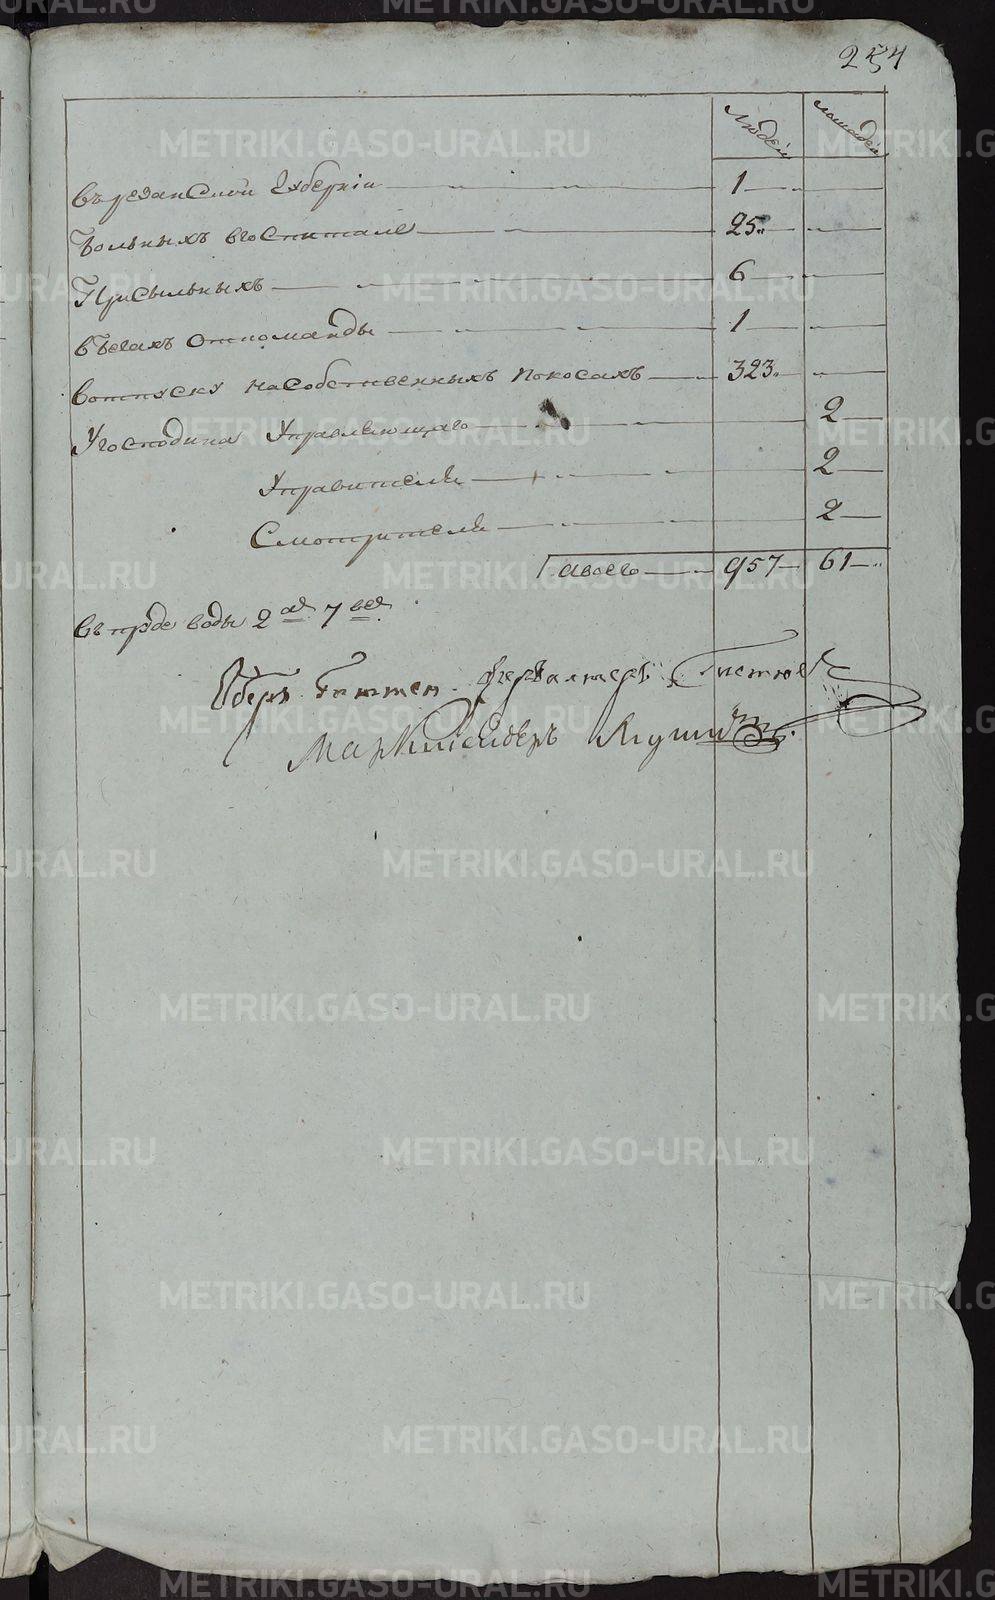 254
Людей лошадей
въ резанской губерніи 1
больныхъ вгоспитале 25
Присыльныхъ 6
вбегахъ откоманды 1
вотпуску насобственныхъ покосахъ 323
Угосподина Управляющаго 2
Управителя 2
Смотрителя 2
авсего 957 61
въ пруде воды 2 ар. 7 вер.
Оберъ Гиттен фервалтеръ
Маркшейдеръ
METRIKI.GASO-URAL.RU